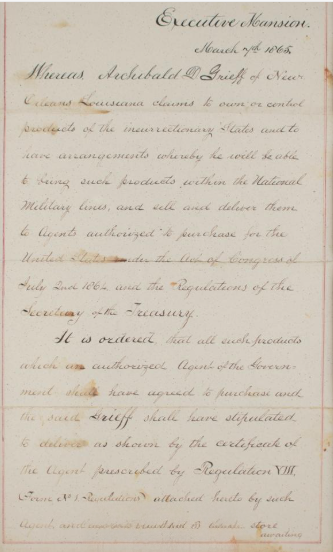 Executive Mansion.
March 7th 1865.
Whereas, Archibald D Grieff of New-
Orleans Louisiana claims to own or control
products of the insurrectionary States and to
have arrangements whereby he will be able
to bring such products within the National
Military lines, and sell and deliver them
to Agents authorized to purchase for the
United States under the Act of Congress of
July 2nd 1864, and the Regulations of the
Secretary of the Treasury.
It is ordered, that all such products
which an authorized Agent of the Govern-
ment shall have agreed to purchase and
the said Grieff shall have stipulated
to deliver as shown by the certificate of
the Agent prescribed by Regulation VIII,
Form No 1. attached hereto by such
Agent and B